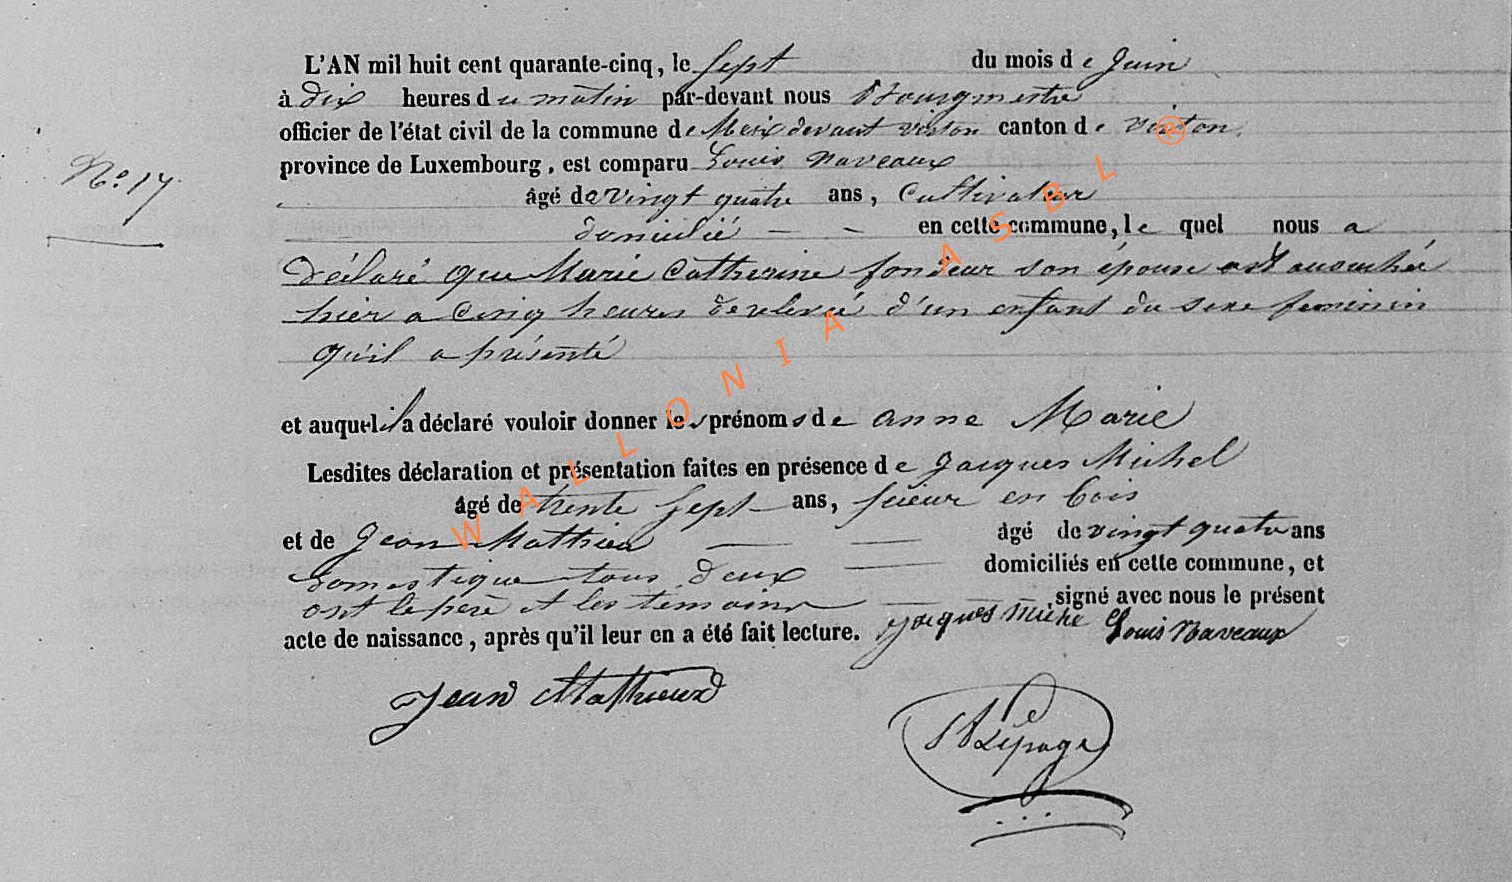 L'AN mil huit cent quarante-cinq, le sept du mois de Juin
à dix heures du matin par-devant nous Bourgmestre
officier de l'état civil de la commune de Meix devant virton canton de virton.
province de Luxembourg, est comparu Louis Naveaux
N.º 17.
âgé de vingt quatre ans, Cultivateur
domicilié — — en cette commune, le quel nous a
déclaré que Marie Catherine fondeur son épouse est accouchée
hier a Cinq heures de relevée d'un enfant du sexe feminin
qu'il a présenté
et auquel il a déclaré vouloir donner les prénoms de anne Marie
Lesdites déclaration et présentation faites en présence de Jacques Michel
âgé de trente sept ans, scieur en bois
et de Jean Mathieu — — âgé de vingt quatre ans
domestique tous deux — domiciliés en cette commune, et
ont le pere et les temoins — — signé avec nous le présent
acte de naissance, après qu'il leur en a été fait lecture. jacques miche Louis Naveaux
Jean Mathieux
Lepage
WALLONIA ASBL ®